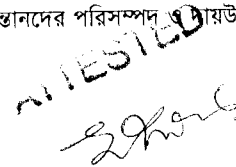 ন্তানদের পরিসম্পদ ও দায়উ
ATTESTED